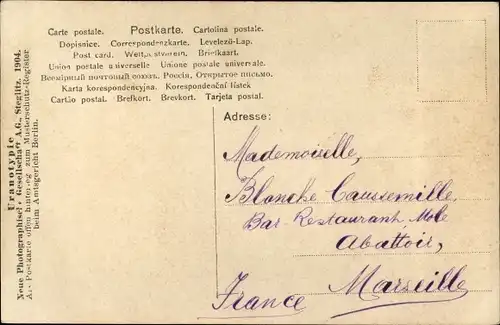 Carte postale. Postkarte. Cartolina postale.
Dopisnice. Correspondenzkarte. Levelező-Lap.
Post card. Weltpostverein. Briefkaart.
Union postale universelle Unione postale universale.
Всемірный почтовый союзъ. Россія, Открытое письмо.
Karta korespondencyjna. Korespondenční lístek
Cartao postal. Brefkort. Brevkort. Tarjeta postal.
Adresse:
Mademoiselle,
Blanche Caussemille,
Bar-Restaurant Mole
Abattoir,
Marseille
France
Uranotypie
Neue Photographische Gesellschaft A.G., Steglitz. 1904.
Als Postkarte offen hinterleg zum Musterschutz-Register
beim Amtsgericht Berlin.